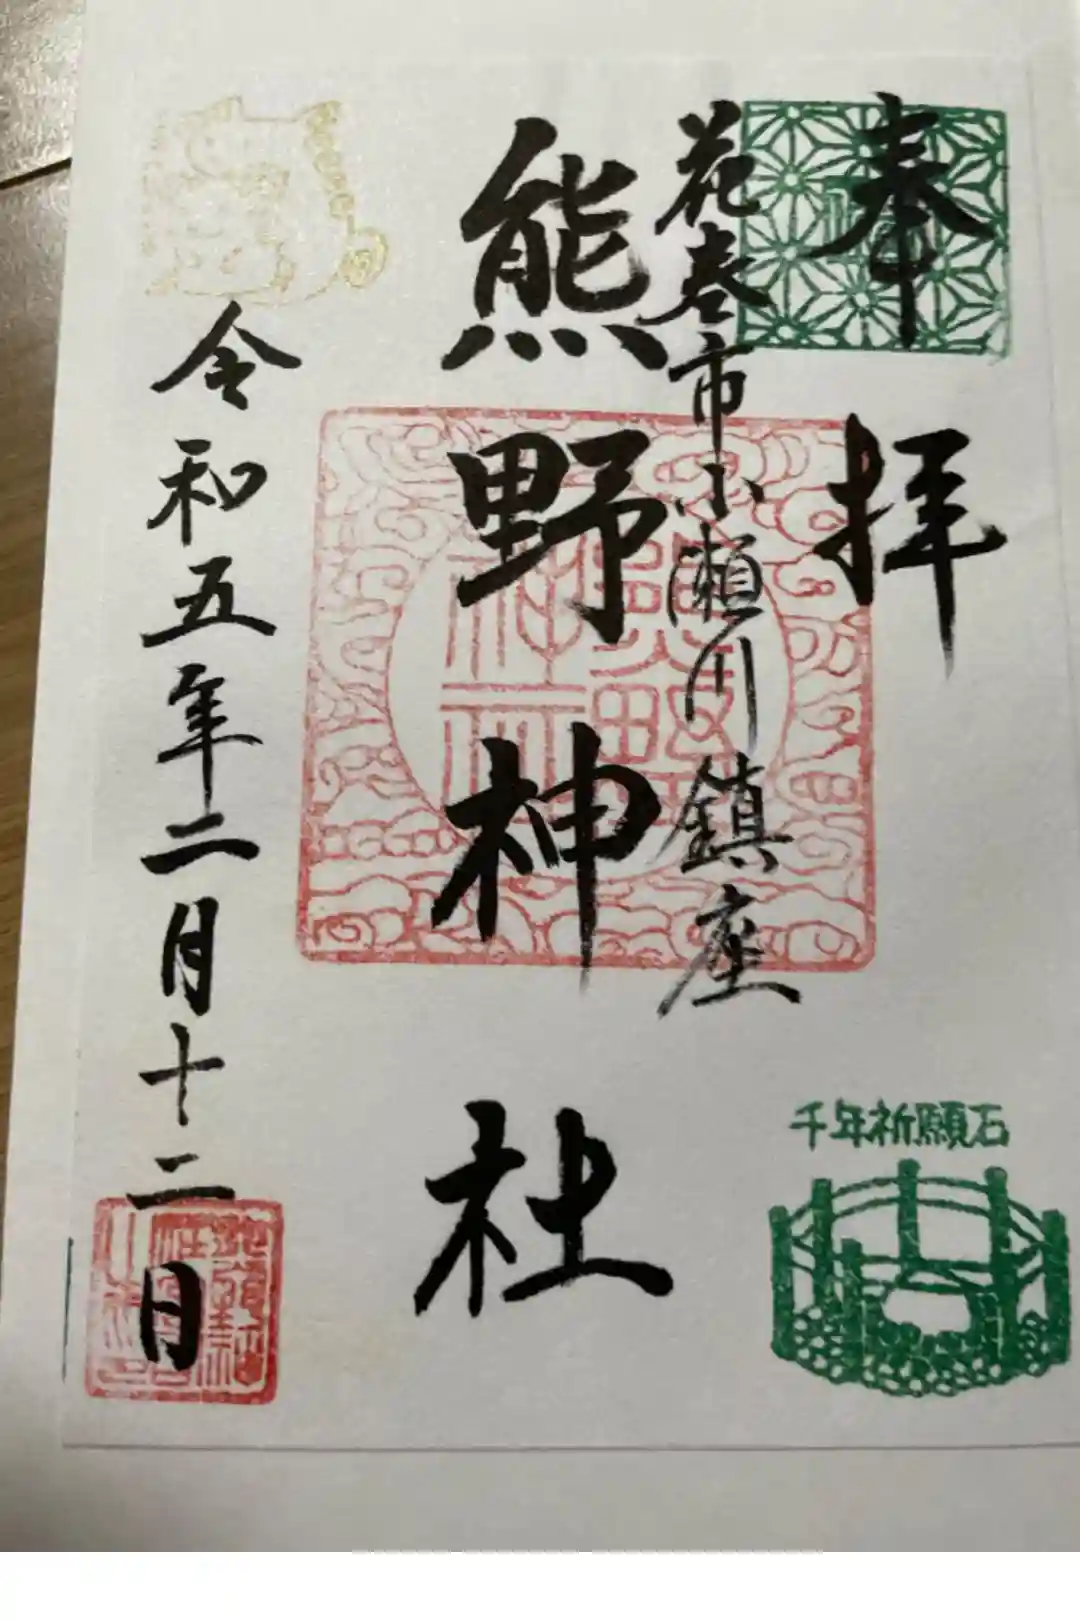 奉拝
花巻市小瀬川鎮座
熊野神社
令和五年二月十二日
千年祈願石
熊野神社